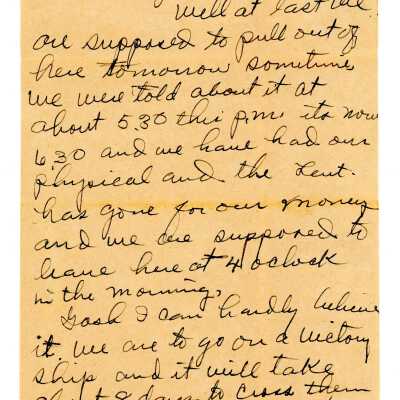 well at last we
are supposed to pull out of
here tomorrow sometime
we were told about it at
about 5.30 this p.m. its now
6.30 and we have had our
physical and the Leut.
has gone for our money
and we are supposed to
leave here at 4 oclock
in the morning,
Gosh I can hardly believe
it. we are to go on a victory
ship and it will take
about 8 days to cross them